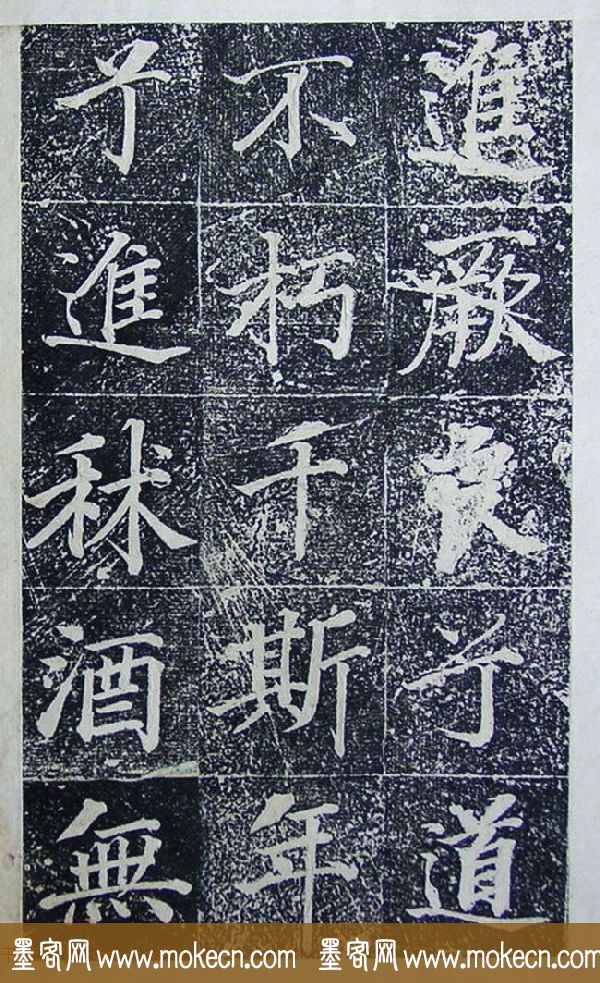 進厥兮道
不朽千斯年
兮進秫酒無
墨客网 www.mokecn.com 墨客网 www.mokecn.com